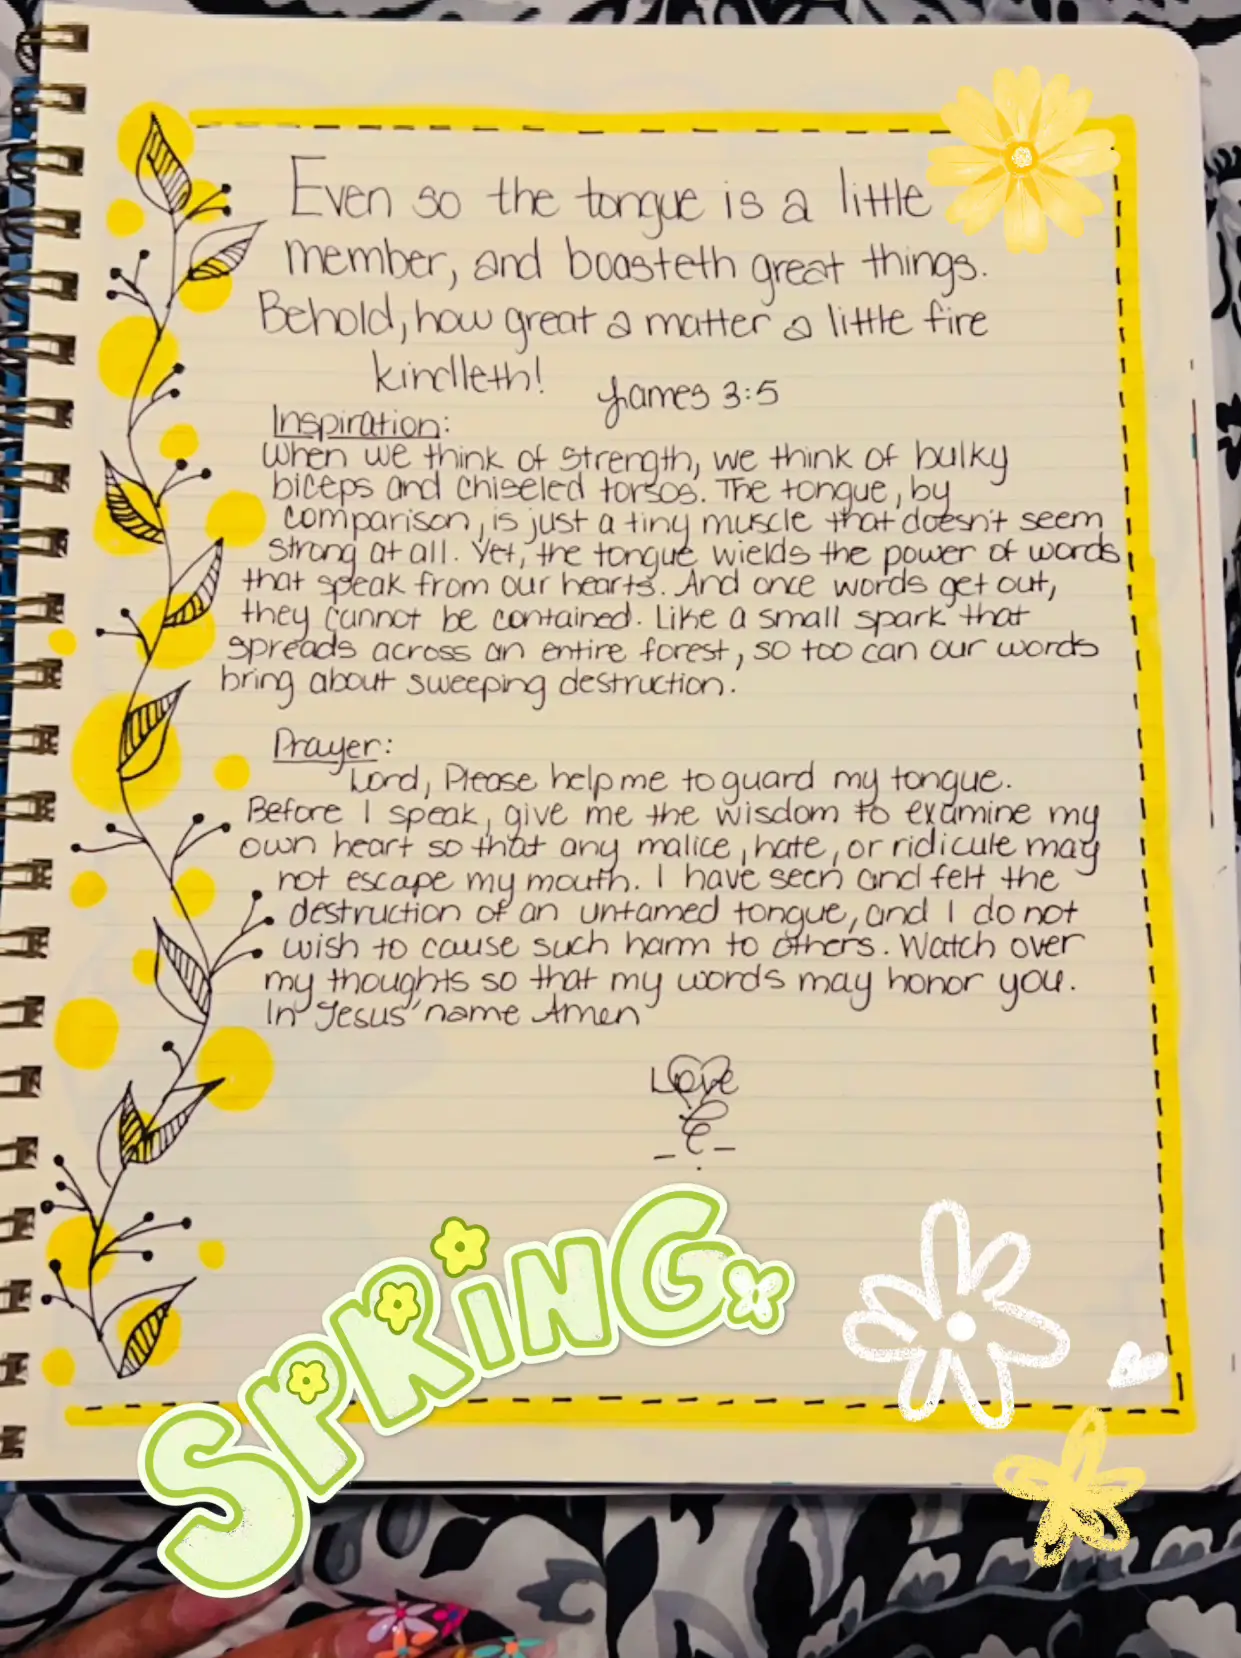 Even so the tongue is a little
member, and boasteth great things.
Behold, how great a matter a little fire
kindleth! James 3:5
Inspiration:
When we think of strength, we think of bulky
biceps and chiseled torsos. The tongue, by
comparison, is just a tiny muscle that doesn't seem
strong at all. Yet, the tongue wields the power of words
that speak from our hearts. And once words get out,
they cannot be contained. Like a small spark that
spreads across an entire forest, so too can our words
bring about sweeping destruction.
Prayer:
Lord, Please help me to guard my tongue.
Before I speak, give me the wisdom to examine my
own heart so that any malice, hate, or ridicule may
not escape my mouth. I have seen and felt the
destruction of an untamed tongue, and I do not
wish to cause such harm to others. Watch over
my thoughts so that my words may honor you.
In Jesus' name Amen
Love
SPRiNG